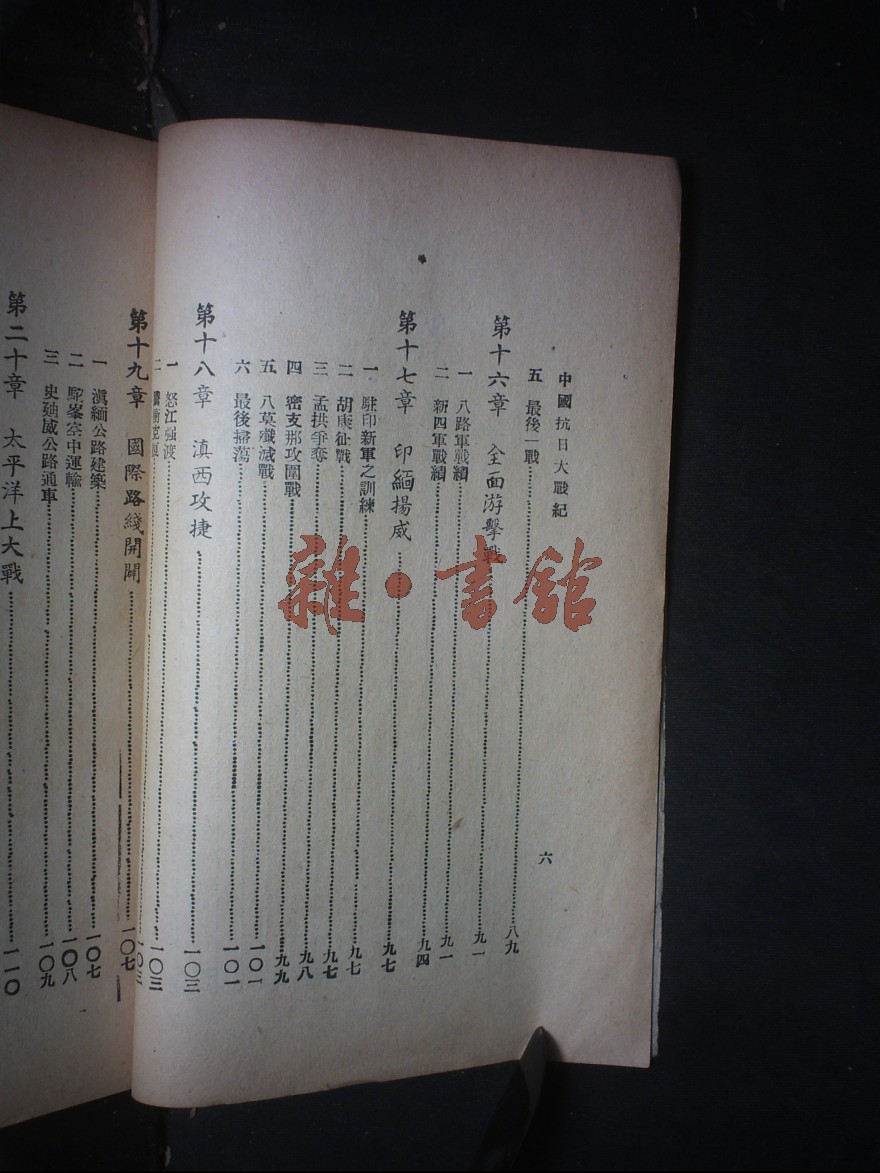 中國抗日大戰紀
六
五 最後一戰 八九
第十六章 全面游擊戰 九一
一 八路軍戰績 九一
二 新四軍戰績 九四
第十七章 印緬揚威 九七
一 駐印新軍之訓練 九七
二 胡康征戰 九七
三 孟拱爭奪 九七
四 密支那攻圍戰 九八
五 八莫殲滅戰
六 最後掃蕩 一〇一
第十八章 滇西攻捷 一〇三
一 怒江强渡 一〇三
二
第十九章 國際路綫開闢 一〇七
一 滇緬公路建築 一〇七
二 駝峯空中運輸 一〇八
三 史廸威公路通車 一〇九
第二十章 太平洋上大戰 一一〇
雜·書館